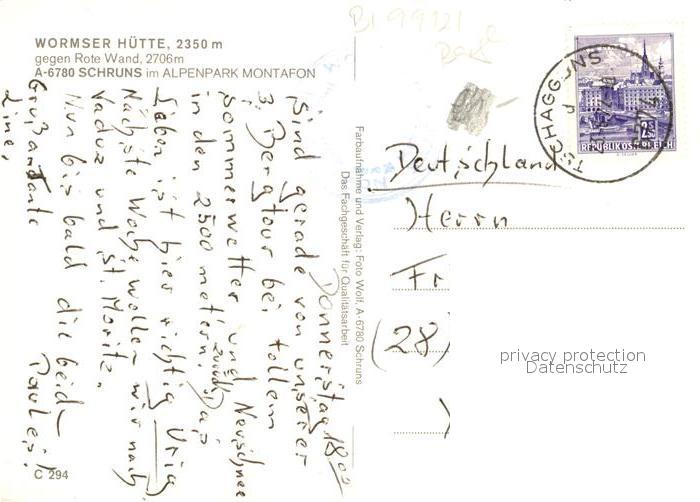 WORMSER HÜTTE, 2350 m
gegen Rote Wand, 2706m
A-6780 SCHRUNS im ALPENPARK MONTAFON
Donnerstag 18.00
Sind gerade von unserer
3. Bergtour bei tollem
Sommerwetter und Neuschnee
in den 2500 metern zurück. Das
Leben ist hier richtig Urig
Nächste Woche wollen wir nach
Vaduz und St. Moritz.
Nun bis bald die beid
Paules!
Gruß an Tante
Line,
C 294
Farbaufnahme und Verlag: Foto Wolf, A-6780 Schruns
Das Fachgeschäft für Qualitätsarbeit
BI 99121
TSCHAGGUNS
REPUBLIK ÖSTERREICH
Deutschland
Herrn
Fr
(28)
privacy protection
Datenschutz